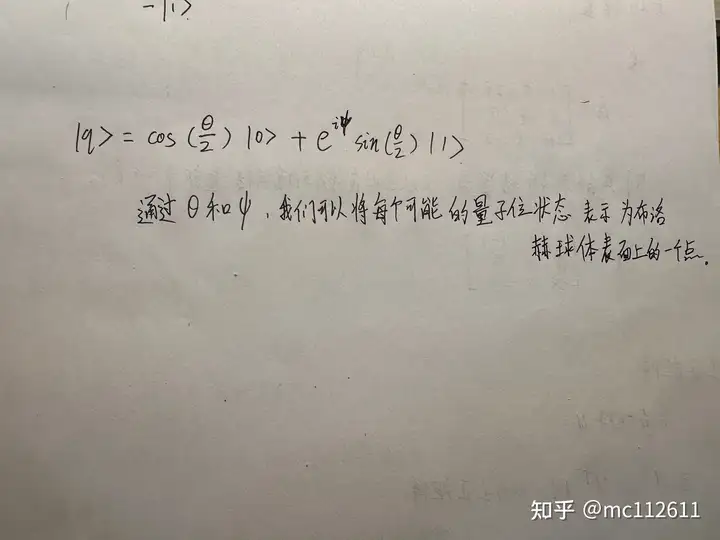 -|1>
|q> = cos(θ/2)|0> + e^{iψ} sin(θ/2)|1>
通过 θ 和 ψ，我们可以将每个可能的量子位状态 表示为布洛
赫球体表面上的一个点。
知乎 @mc112611